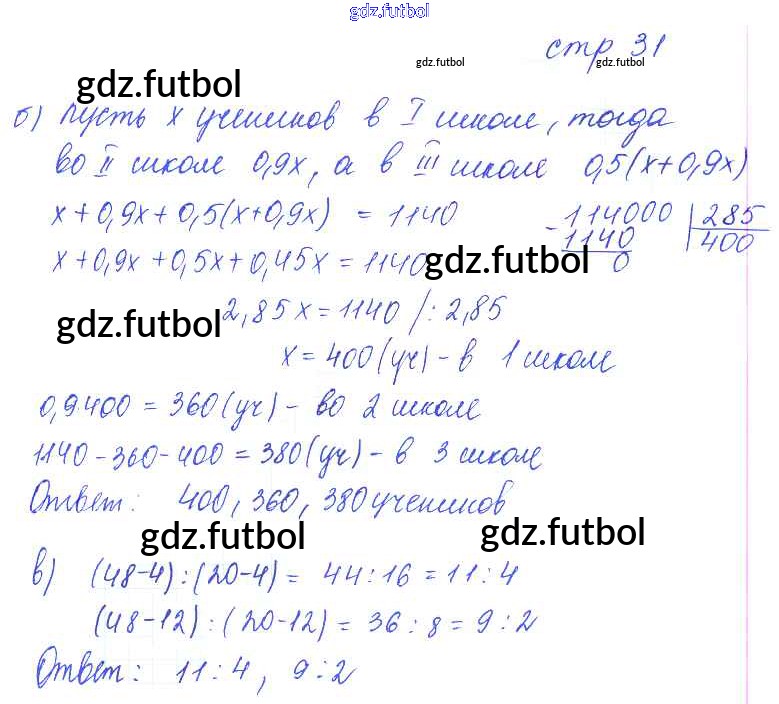 gdz.futbol
стр 31
gdz.futbol
gdz.futbol
gdz.futbol
б) Пусть x учеников в I школе, тогда
во II школе 0,9x, а в III школе 0,5(x+0,9x)
x+0,9x+0,5(x+0,9x) = 1140
-114000 | 285
1140 400
0
x+0,9x+0,5x+0,45x=1140
gdz.futbol
gdz.futbol
2,85x=1140 /:2,85
x=400(уч)-в 1 школе
0,9400=360(уч)-во 2 школе
1140-360-400=380(уч)-в 3 школе
Ответ: 400, 360, 380 учеников
gdz.futbol
gdz.futbol
в) (48-4):(20-4)= 44:16=11:4
(48-12):(20-12)=36:8=9:2
Ответ: 11:4, 9:2